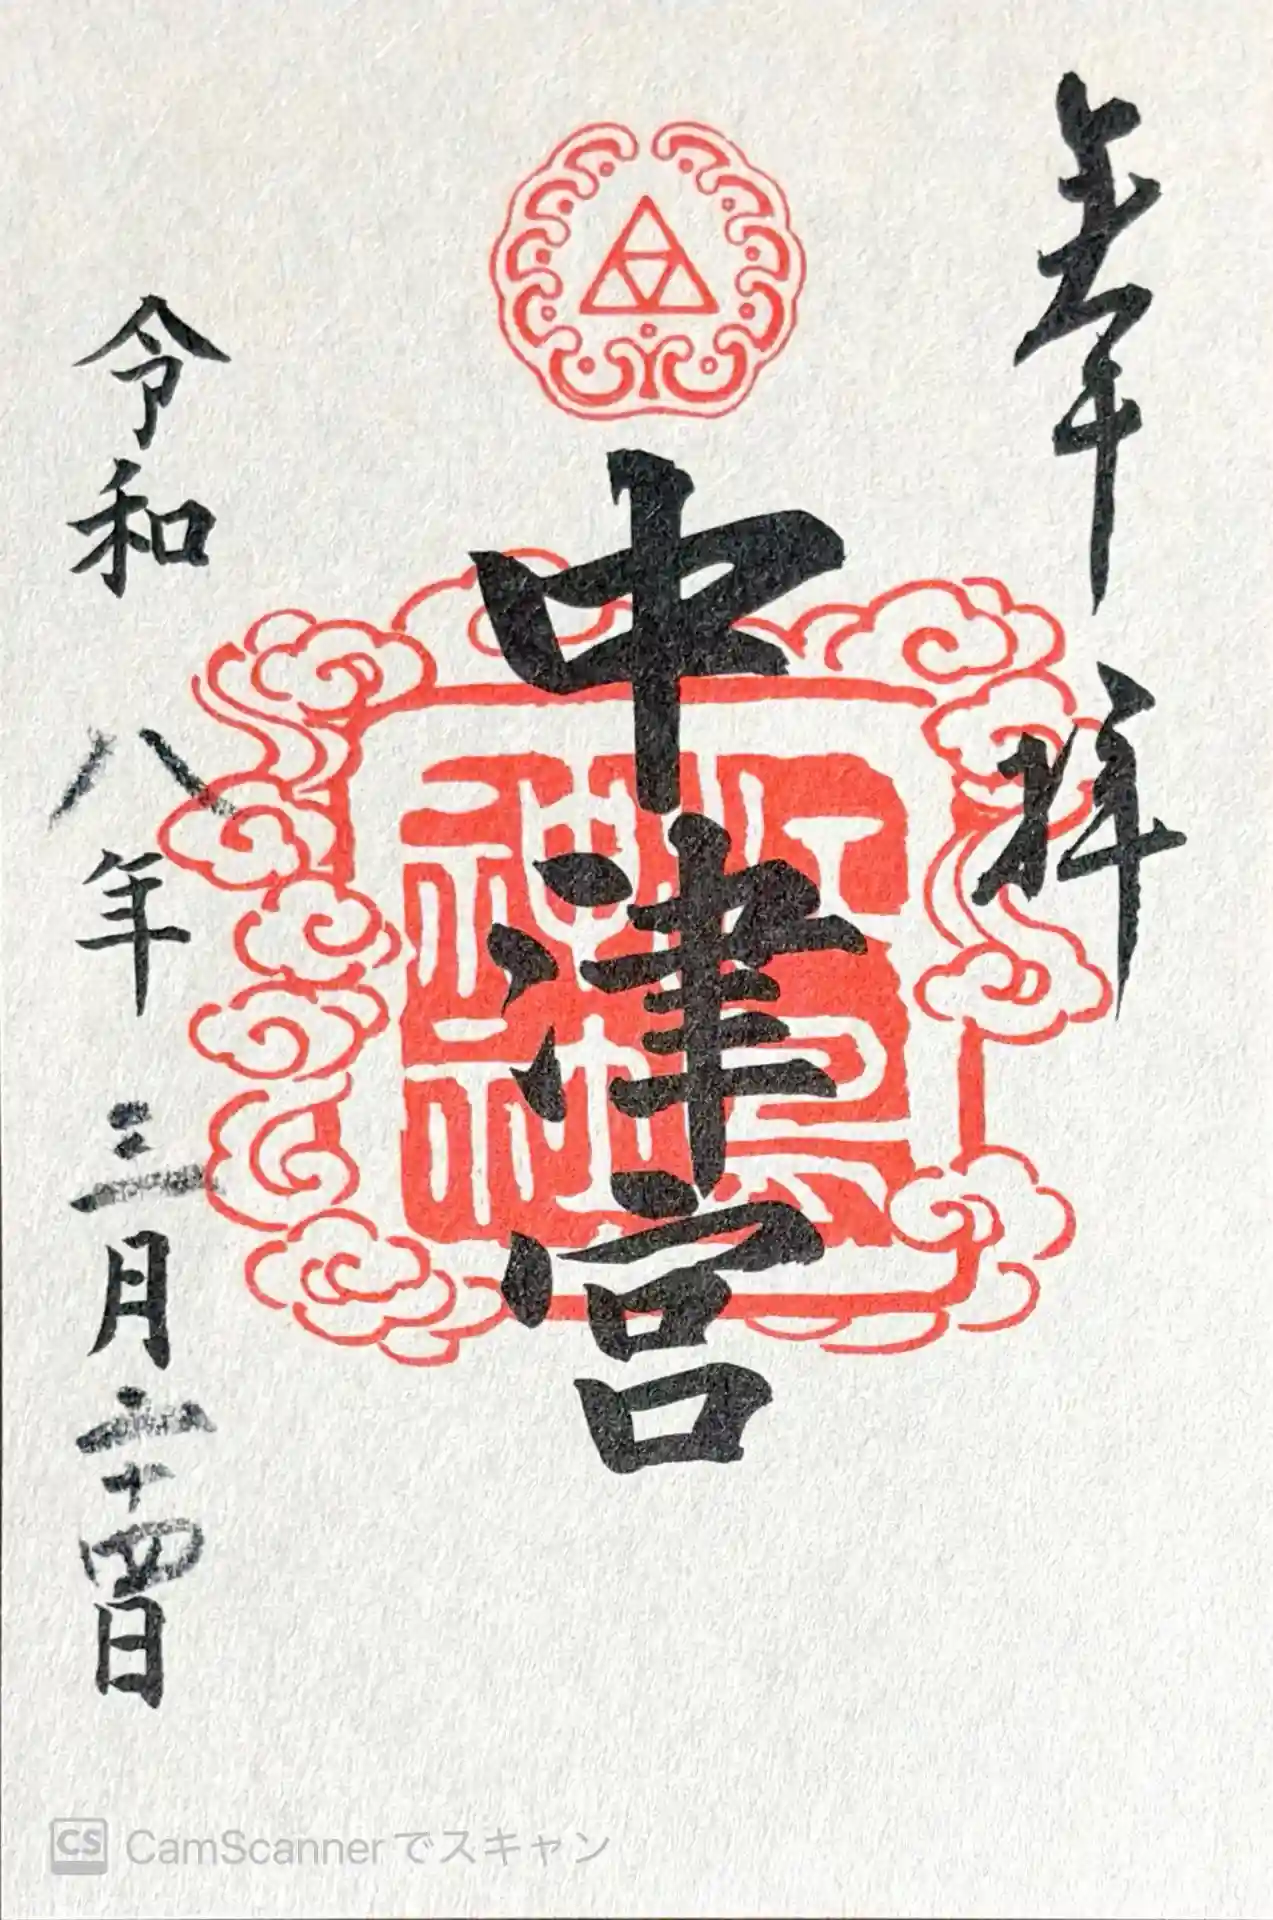 奉拝
中津宮
江島
神社
令和八年三月二十四日
CS CamScannerでスキャン